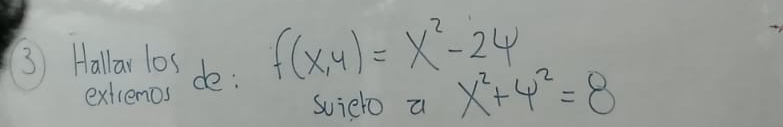 ③ Hallar los extremos de: f(x,y) = x² - 2y
sujeto a x² + y² = 8